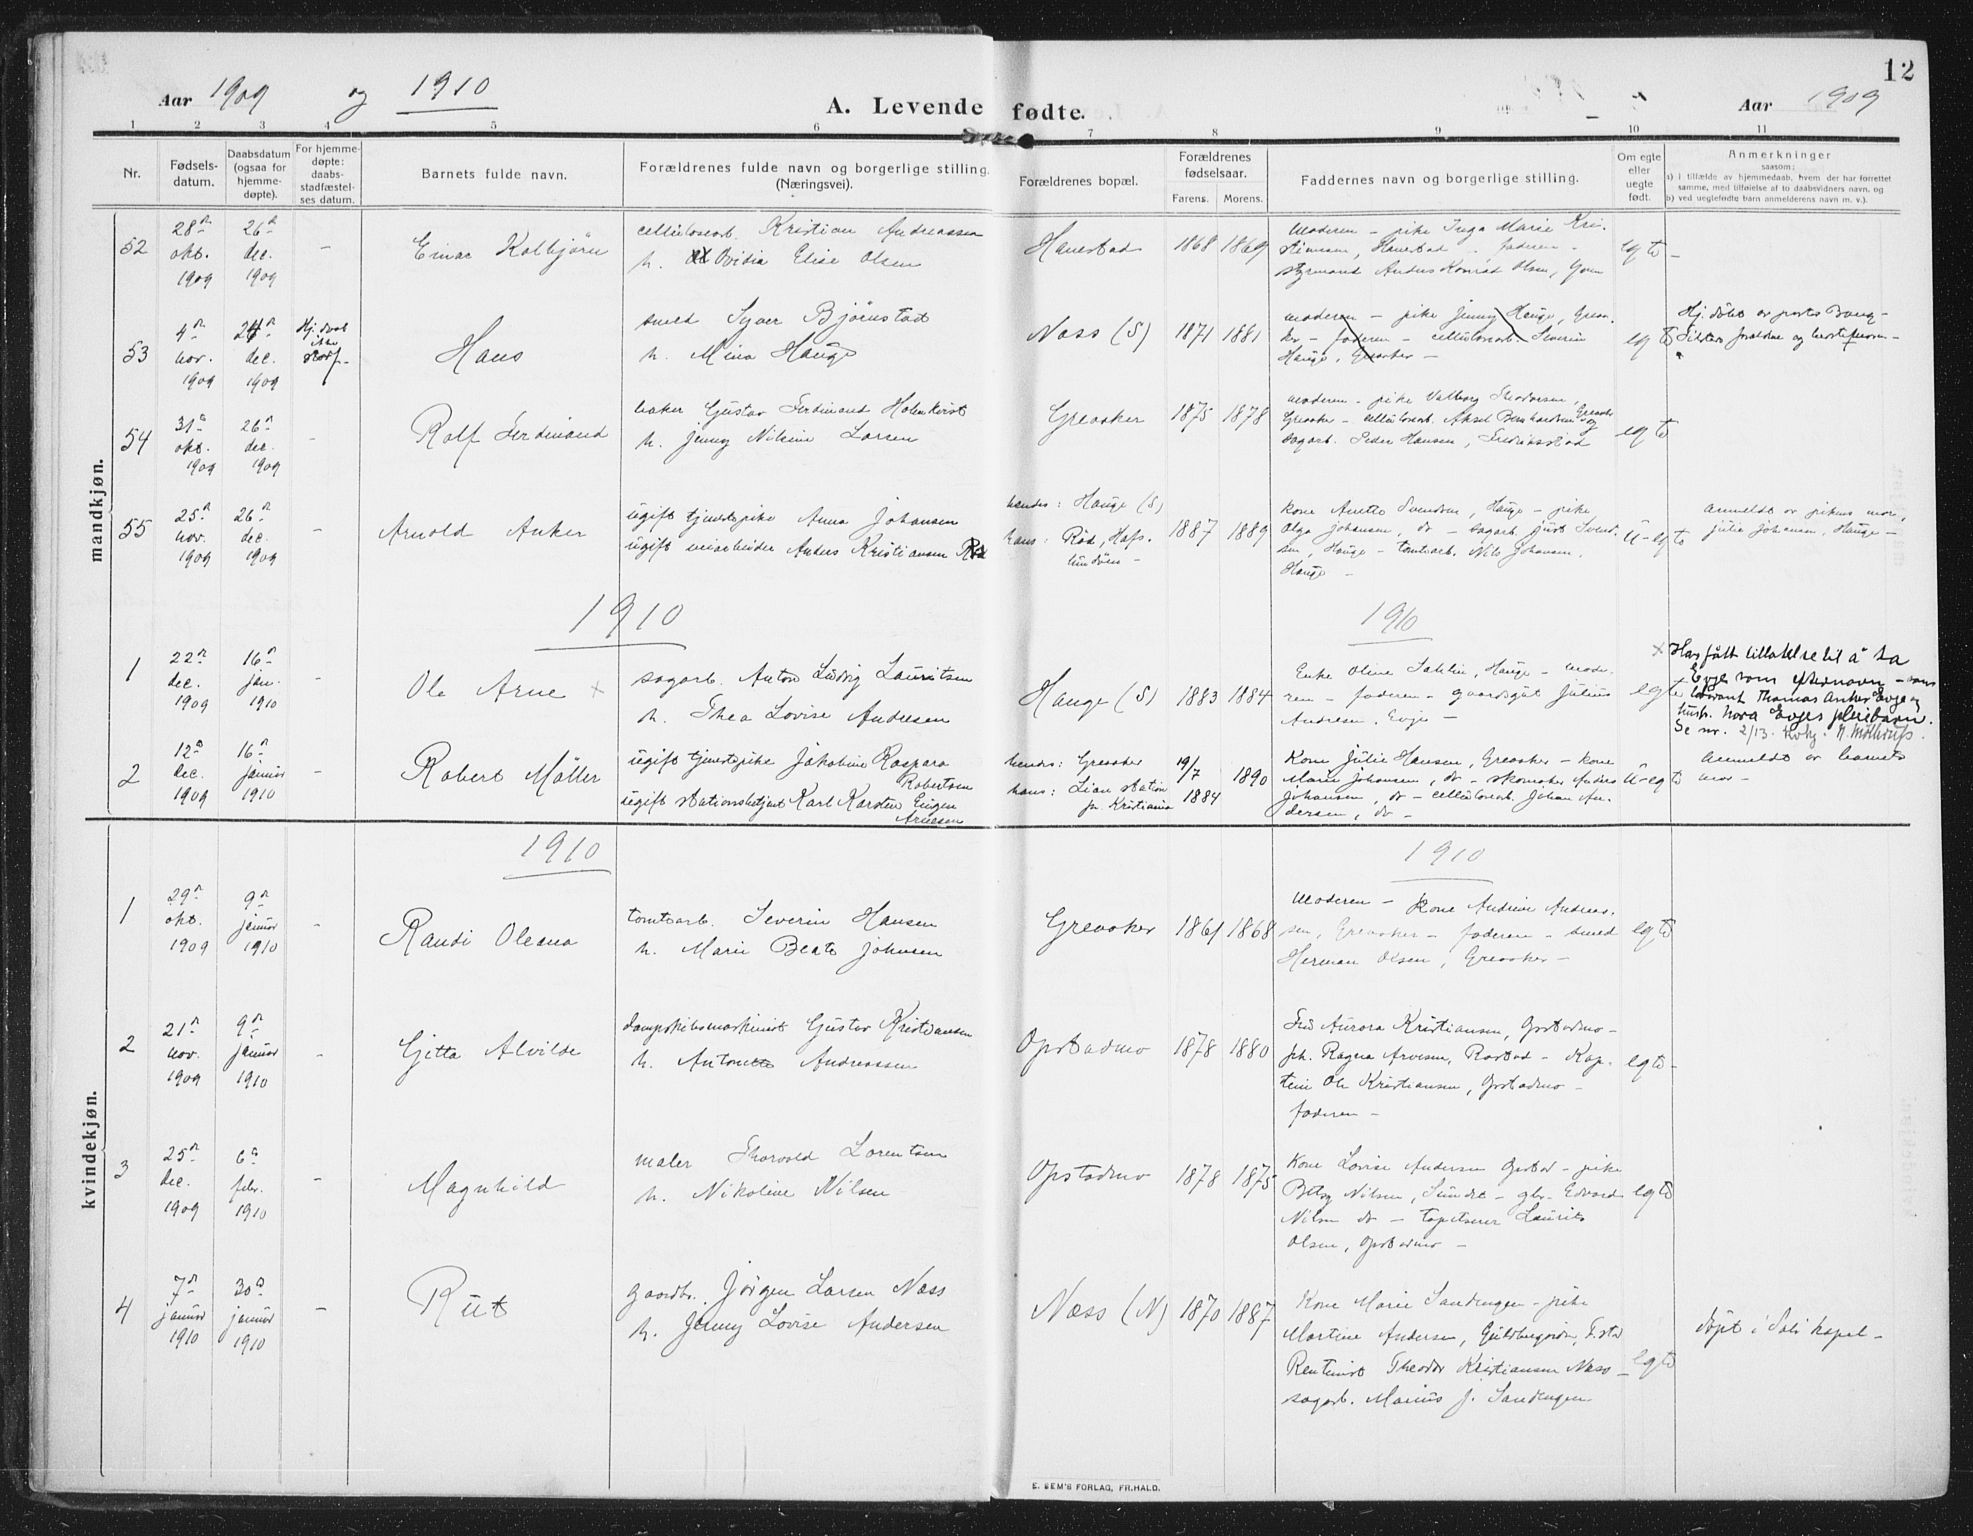 12
Aar 1909 og 1910
A. Levende fødte.
Aar 1909
1 2 3 4 5 6 7 8 9 10 11
Nr.
Fødsels-
datum.
Daabsdatum
(ogsaa for
hjemme-
døpte).
For hjemme-
døpte:
daabs-
stadfæstel-
ses datum.
Barnets fulde navn.
Forældrenes fulde navn og borgerlige stilling.
(Næringsvei).
Forældrenes bopæl.
Forældrenes
fødselsaar.
Farens. Morens.
Faddernes navn og borgerlige stilling.
Om egte
eller
uegte
født.
Anmerkninger
saasom:
a) i tilfælde av hjemmedaab, hvem der har forrettet
samme, med tilføielse af to daabsvidners navn, og
b) ved uegtefødte barn anmelderens navn m. v.).
mandkjøn.
52
28de
okt.
1909
26de
dec.
1909
-
Einar Kolbjörn
cellulosearb. Kristian Andreassen
h. Ovidia Elise Olsen
Hanestad
1868 1869
Moderen - pike Inga Marie Kri-
stiansen, Hanestad - faderen -
styrmand Anders Konrad Olsen,
egte -
53
4de
nov.
1909
24de
dec.
1909
Hj. daab
ikke
stadf.
Hans
smed Syver Björnstad
h. Mina Hauge
Næss (S)
1871 1881
moderen - pike Jenny Hauge, Grea-
ker - faderen - cellulosearb. Severin
Hauge, Greaaker -
egte
Hj. døbt av
forældre og
54
31te
okt.
1909
26de
dec.
1909
-
Rolf Ferdinand
baker Gustav Ferdinand Holmkvist
h. Jenny Nilsine Larsen
Greaaker
1875 1878
moderen - pike Valborg Thorvesen,
Greaaker - cellulosearb. Aksel Bernhardsen Greaaker og
sagarb. Peder Hansen, Fredriksstad
egte
55
25de
nov.
1909
26de
dec.
1909
-
Arnold Anker
ugift tjenestepike Anna Johansen
ugift veiarbeider Anders Kristiansen
hendes: Hauge (S)
hans: Röd, Hafs-
lundsöen -
1887 1889
Kone Anette Svendsen, Hauge - pike
Olga Johansen, do - sagarb. Just Svend-
sen, Hauge - tomtearb. Nils Johansen,
Hauge -
U-egte
anmeldt av pikens mor,
Julie Johansen, Hauge -
1910
1910
1
22de
dec.
1909
16de
jan.
1910
-
Ole Arne x
sagarb. Anton Ludvig Lauritsen
h. Thea Lovise Andresen
Hauge (S)
1883 1884
Enke Oline Sahlin, Hauge - mode-
ren - faderen - gaardsgut Julius
Andresen, Evje -
egte
x Har fått tillatelse til å ta
Evje som efternavn - som
Thomas Anker Evje og
hustr. Nora Evjes pleiebarn.
Se nr. 2/13.
2
12te
dec.
1909
16de
januar
1910
-
Robert Möller
ugift tjenestepike Jakobine Kaspara
Robertsen
ugift stationsbetjent Karl Karsten Eugen
Arnesen
hendes: Greaaker
hans: Lian station
pr. Kristiania
19/7
1884
1890
Kone Julie Hansen, Greaaker - kone
Marie Johansen, do - skomaker Anders
Johansen, do - cellulosearb. Johan An-
dersen, do -
U-egte
Anmeldt av barnets
mor -
kvindekjøn.
1910
1910
1
29de
okt.
1909
9de
januar
1910
-
Randi Oleana
tomtearb. Severin Hansen
h. Marie Beate Johnsen
Greaaker
1861 1868
Moderen - kone Andrine Andreas-
sen, Greaaker - faderen - smed
Herman Olsen, Greaaker -
egte
2
21de
nov.
1909
9de
januar
1910
-
Gjitta Alvilde
dampskibsmaskinist Gustav Kristiansen
h. Antonette Andreassen
Opstadmo
1878 1880
Frk Aurora Kristiansen, Opstadmo -
pk. Ragna Arvesen, Rostad - Kap-
tein Ole Kristiansen, Opstadmo -
faderen -
egte -
3
25de
dec.
1909
6te
febr.
1910
-
Magnhild
maler Thorvald Lorentsen
h. Nikoline Nilsen
Opstadmo
1878 1875
Kone Lovise Andersen Opstad - pike
Betsy Nilsen, Sundet - gbr. Edvard
Nilsen do - tapetserer Laurits
Olsen, Opstadmo -
egte
4
7de
januar
1910
30te
januar
1910
-
Rut
gaardbr. Jörgen Larsen Næss
h. Jenny Lovise Andersen
Næss (N)
1870 1887
Kone Marie Sandengen - pike
Martine Andersen, Guldbergsiden, F.stad
Rentenist Theodor Kristiansen Næss -
sagarb. Marius J. Sandengen
egte
döpt i Soli kapel -
E. SEM'S FORLAG, FR.HALD.